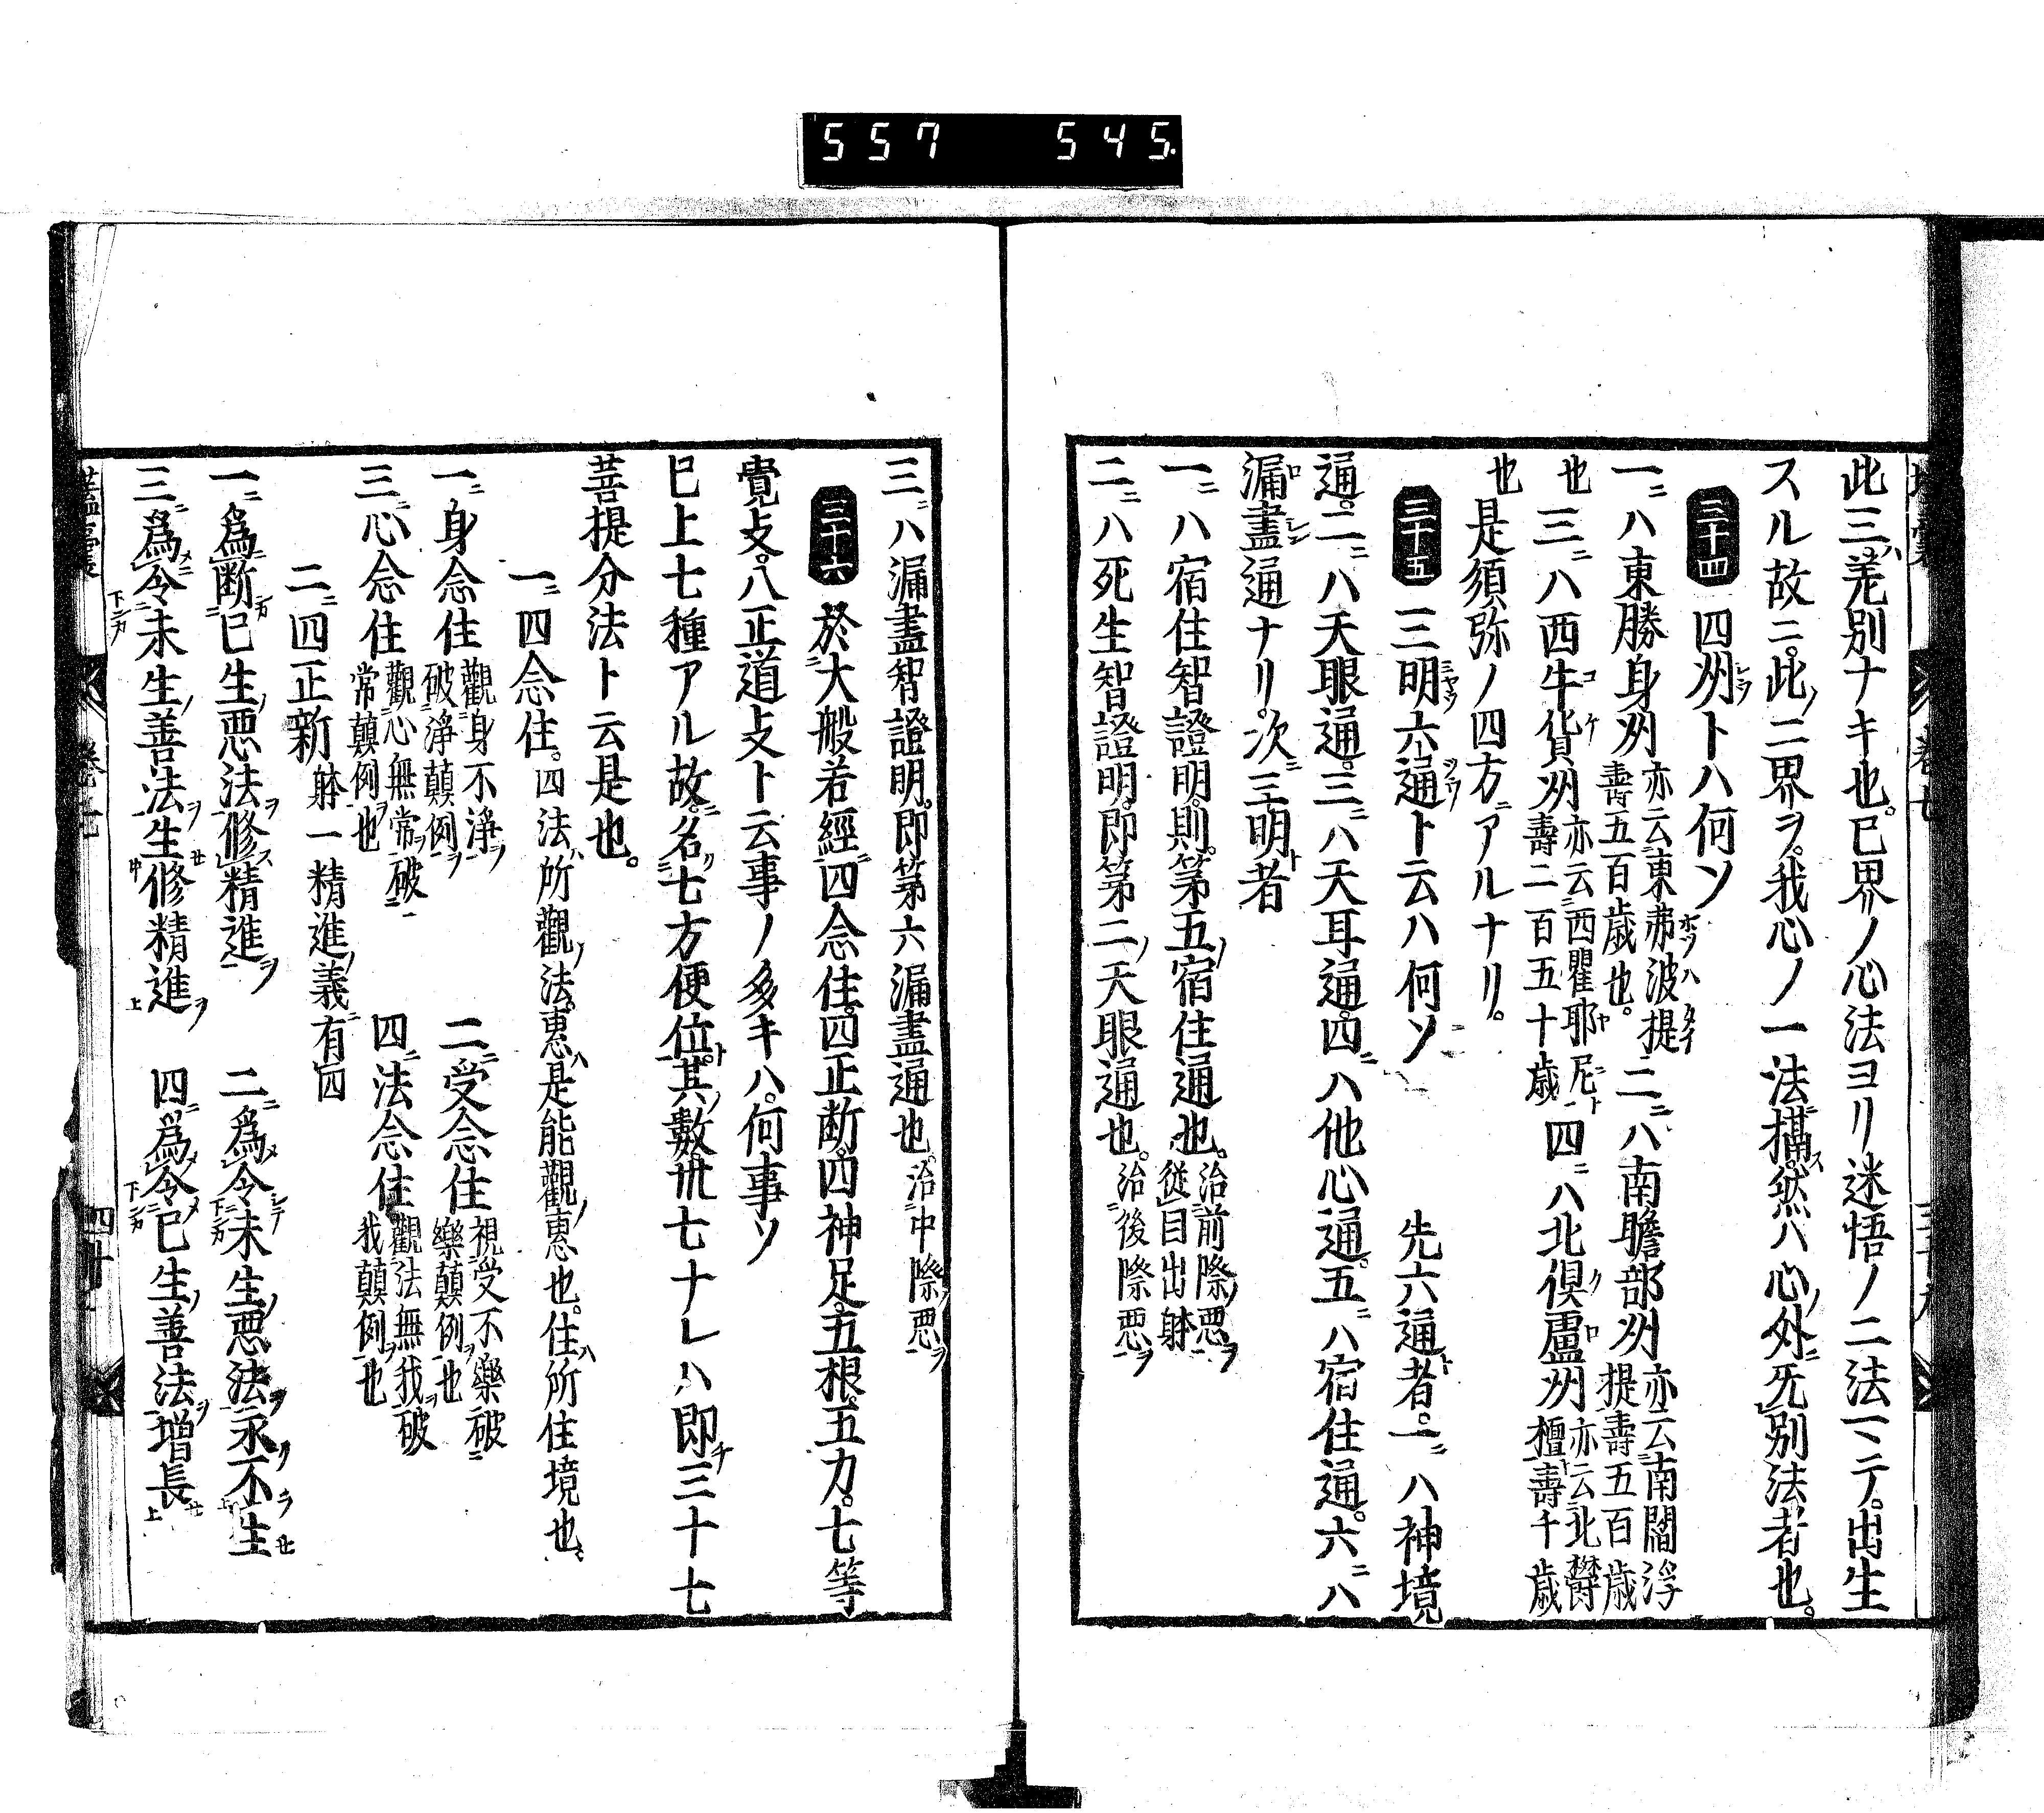 557 545
此三ハ差別ナキ也。已界ノ心法ヨリ迷悟ノ二法マテ。出生
スル故ニ。此ノ二界ヲ。我心ノ一法ニ攝ス。然ハ心ノ外ニ旡別法者也。
三十四 四州トハ何ソ
一ニハ東勝身州 亦云東弗波提 壽五百歳也。 二ニハ南贍部州 亦云南閻浮提壽五百歳
也 三ニハ西牛貨州 亦云西瞿耶尼 壽二百五十歳 四ニハ北倶盧州 亦云北欝檀壽千歳
也 是須弥ノ四方ニアルナリ。
三十五 三明六通ト云ハ何ソ 先六通ト者。一ニハ神境
通。二ニハ天眼通。三ニハ天耳通。四ニハ他心通。五ニハ宿住通。六ニハ
漏盡通ナリ。次ニ三明ト者
一ニハ宿住智證明。則。第五ノ宿住通也。 治前際ノ惡ヲ 従目出躰
二ニハ死生智證明。即第二ノ天眼通也。 治後際惡ヲ
三ニハ漏盡智證明。即第六漏盡通也。 治中際ノ惡ヲ
三十六 於大般若經ニ四念住。四正断。四神足。五根。五力。七等
覺支。八正道支ト云事ノ多キハ。何事ソ
已上七種アル故ニ。名七方便位ト。其ノ數。卅七ナレハ即チ三十七
菩提分法ト云是也。
一ニ四念住。四法ハ所觀ノ法。恵ハ是能觀ノ恵也。住ハ所住境也
一ニ身念住 觀身不淨ヲ 破淨顛倒ヲ 二ニ受念住 視受不樂破 樂顛倒ヲ也
三ニ心念住 觀心無常ヲ破 常顛倒ヲ也 四ニ法念住 觀法無我ヲ破 我顛倒ヲ也
二ニ四正断 躰一精進ノ義ニ有四
一ニ爲断已生ノ惡法ヲ修ス精進ヲ 二ニ爲令未生ノ惡法ヲ永ク不生
三ニ爲令未生ノ善法ヲ生修精進ヲ 四ニ爲令已生ノ善法ヲ増長